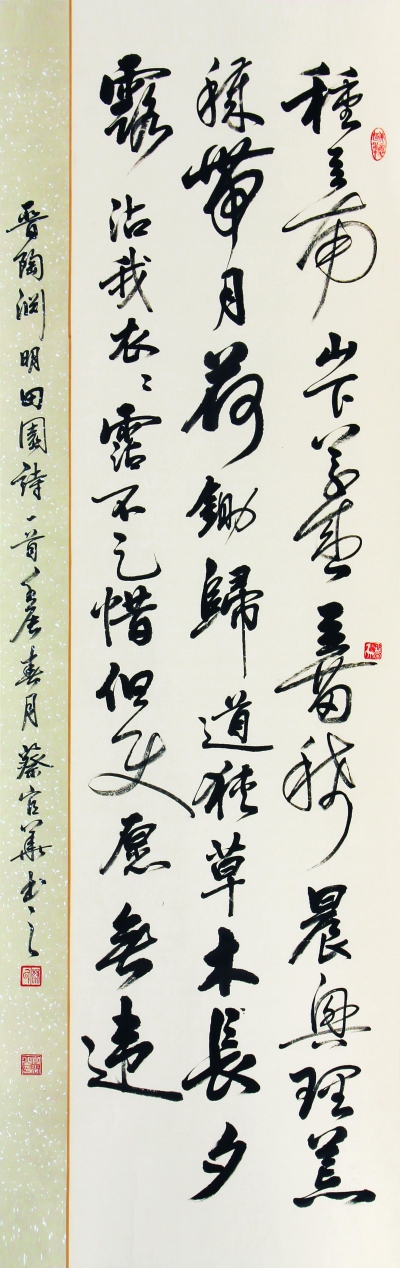 種豆南山下草盛豆苗稀晨興理荒
穢帶月荷鋤歸道狹草木長夕
露沾我衣〻霑不足惜但使愿無違
晉陶渕明田園詩一首壬辰春月蔡官華書之